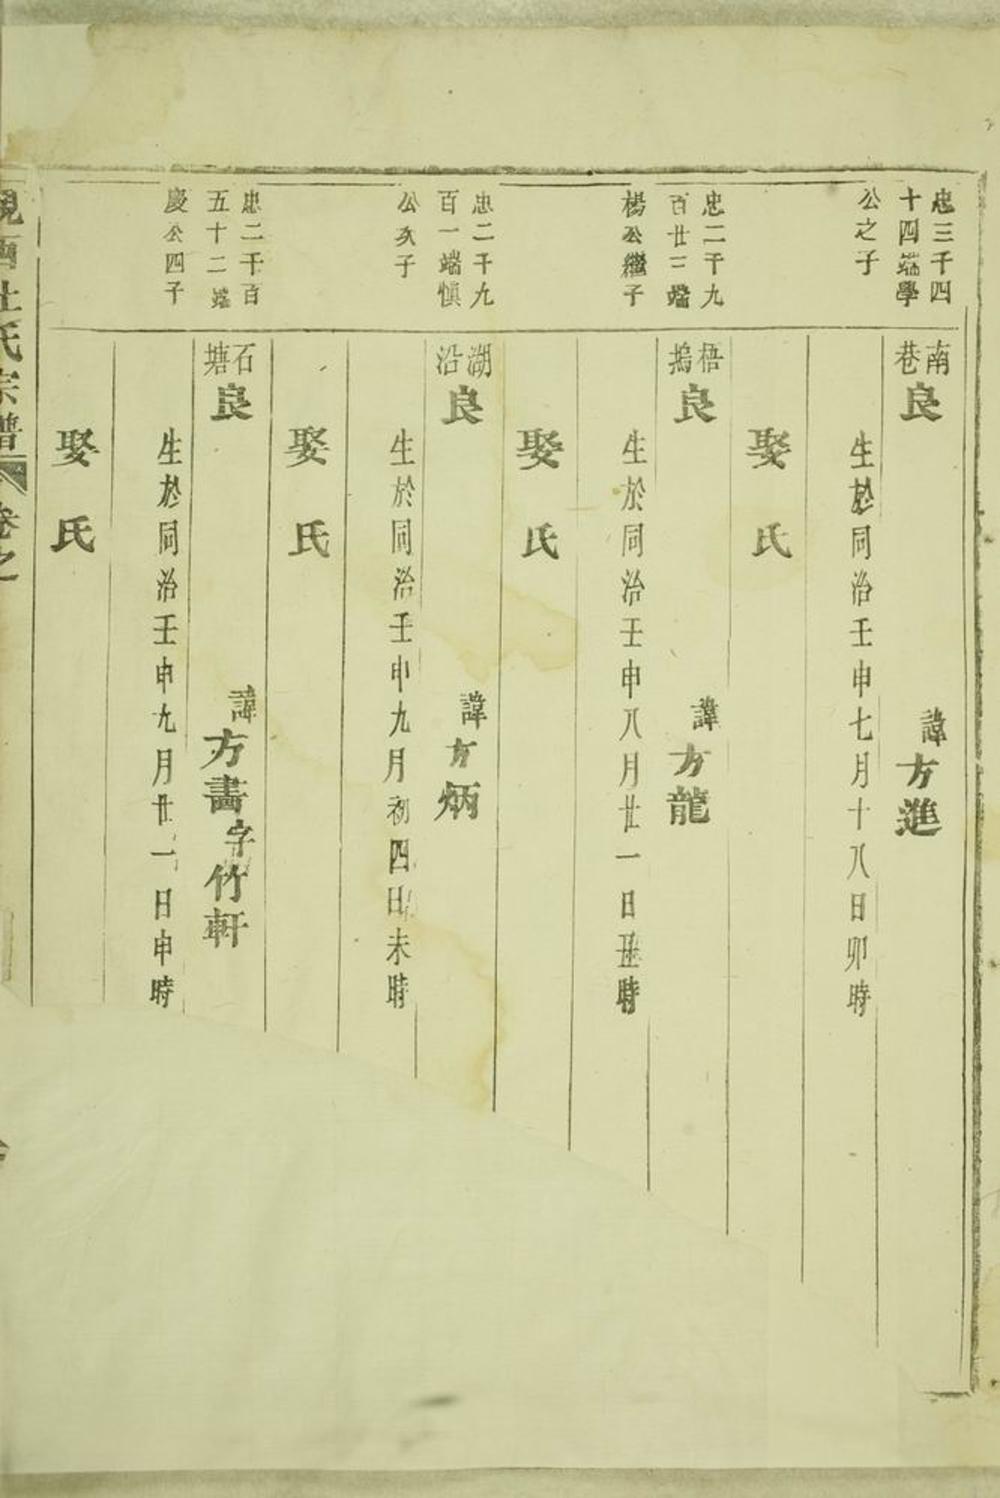 忠三千四
十四端學
公之子
南巷
良
諱方進
生於同治壬申七月十八日卯時
娶 氏
忠二千九
百廿二端
楊公繼子
梧塢
良
諱方龍
生於同治壬申八月廿一日丑時
娶 氏
忠二千九
百一端慎
公次子
湖沿
良
諱方炳
生於同治壬申九月初四日未時
娶 氏
忠二千百
五十二端
慶公四子
石塘
良
諱方畵字竹軒
生於同治壬申九月廿一日申時
娶 氏
杜氏宗譜 卷之